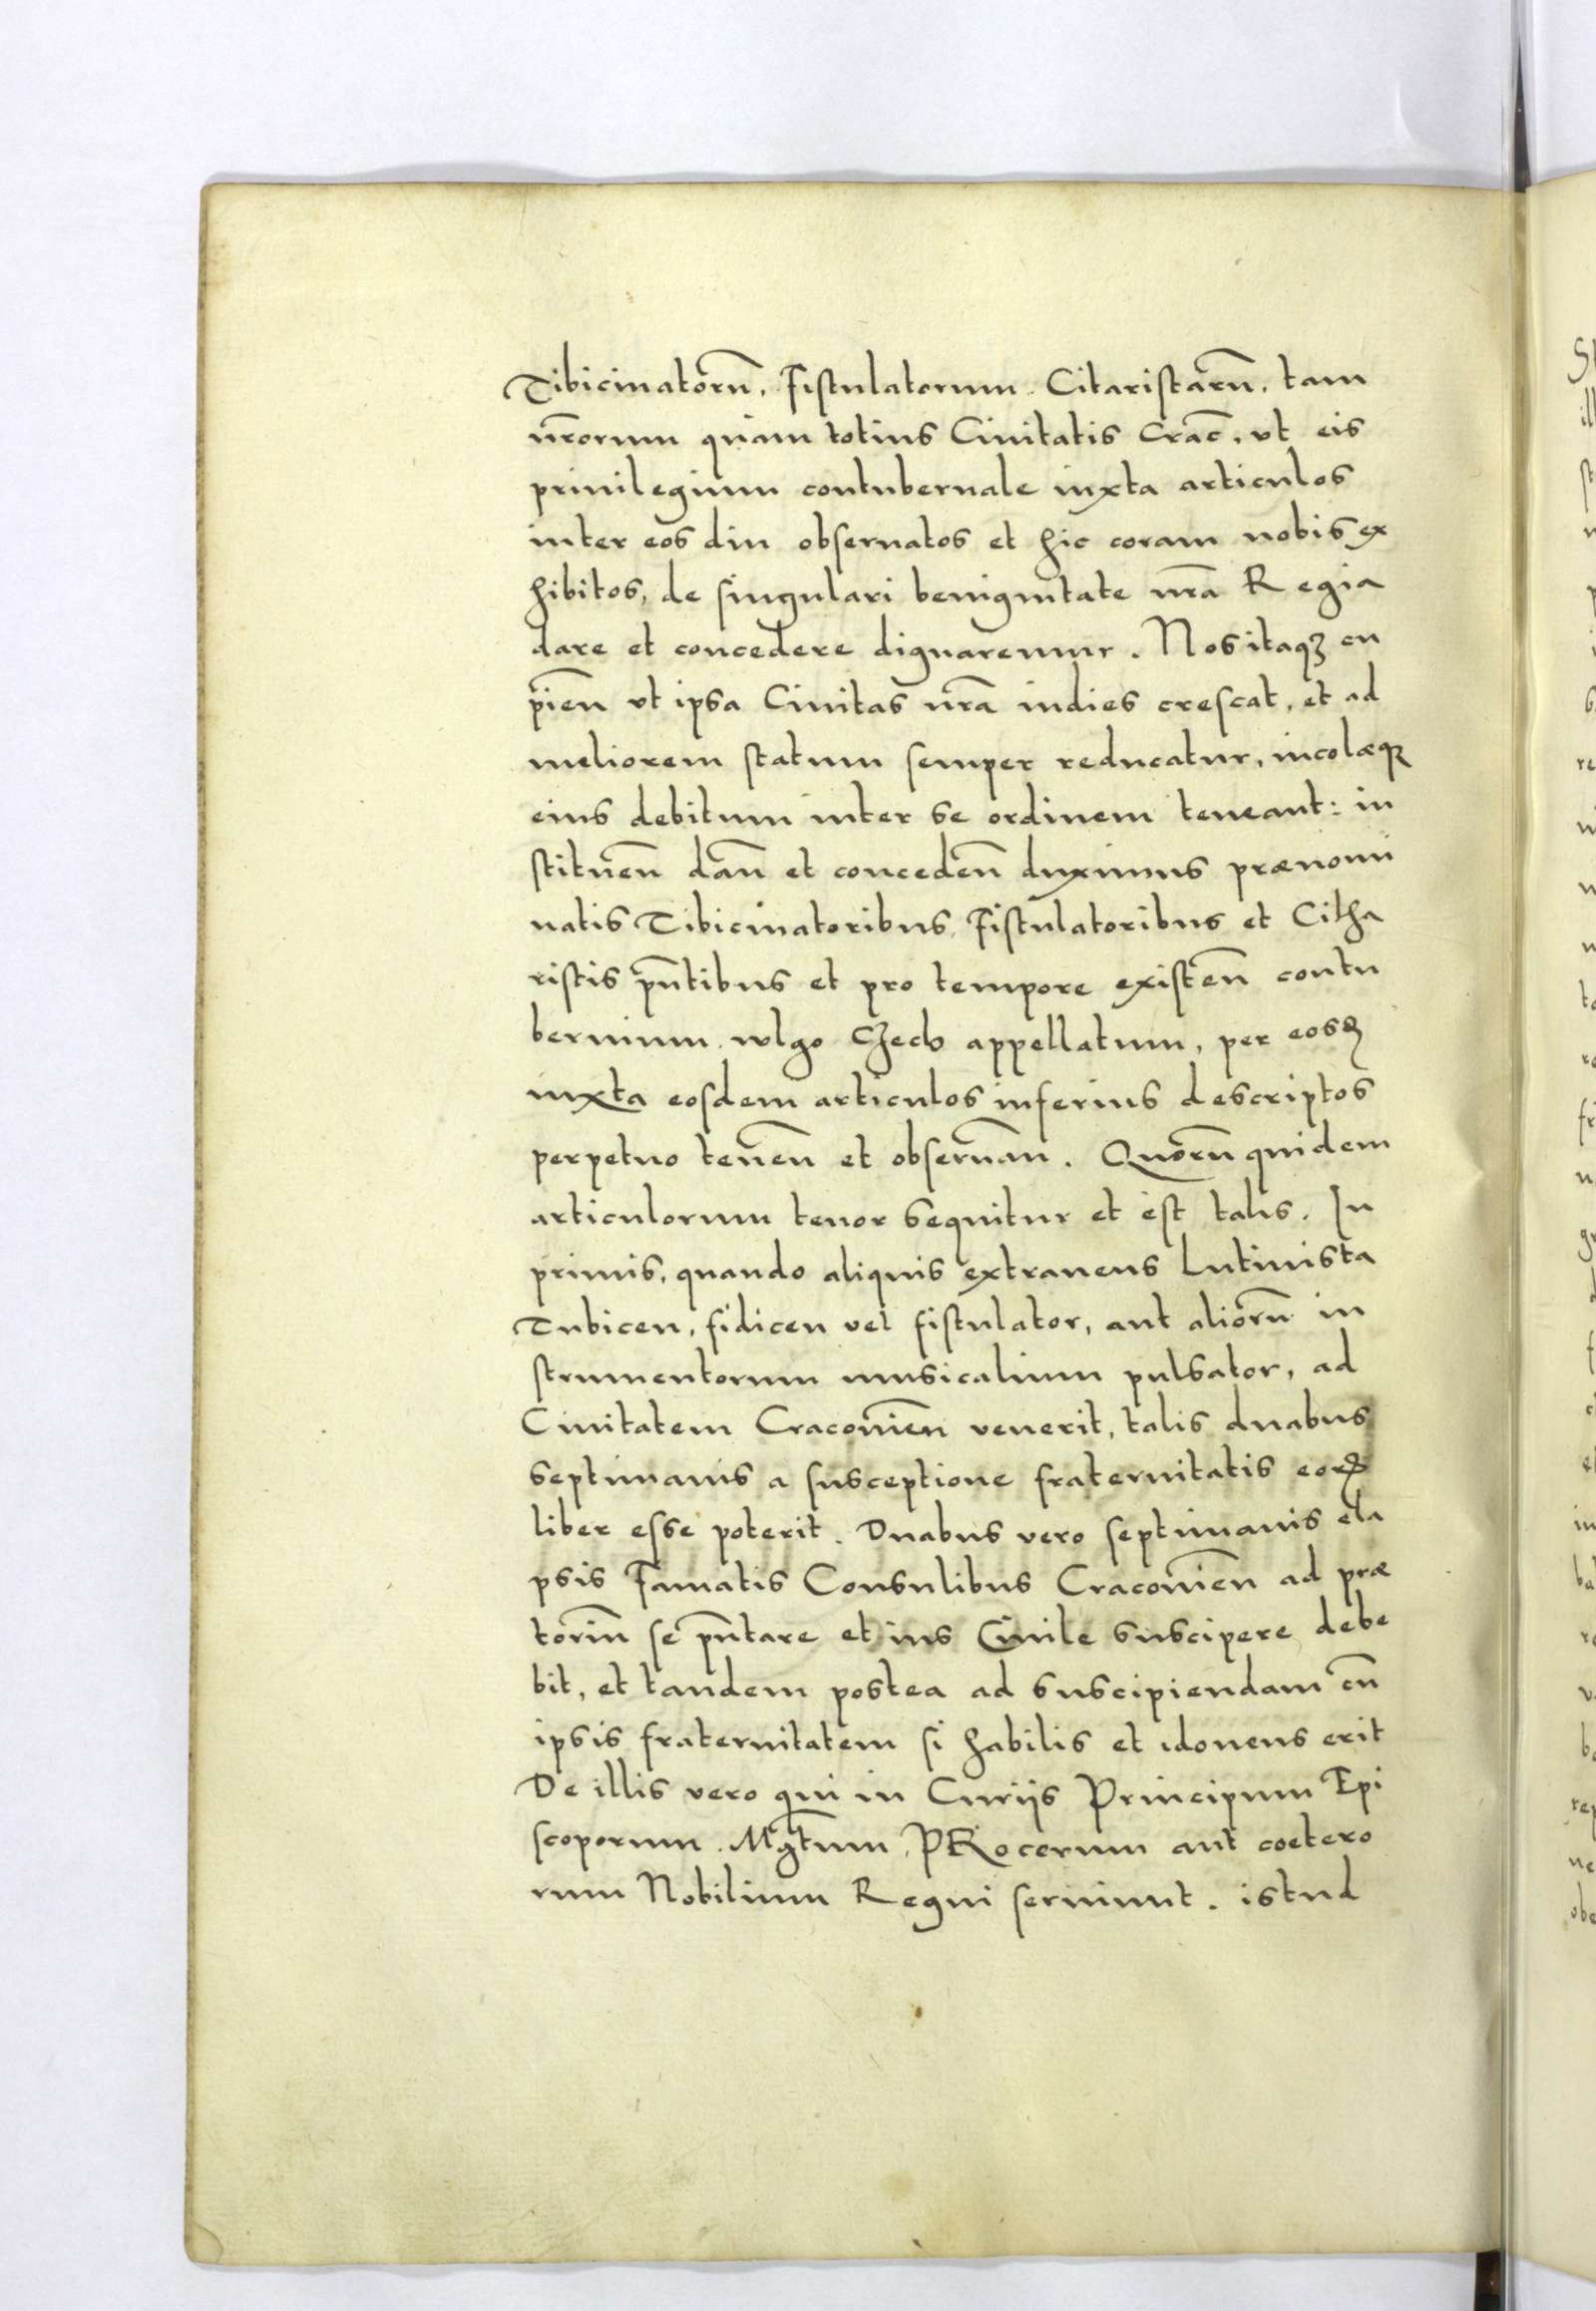 Tibicinatorũ, Fistulatorum. Citaristarũ, tam
nr̃orum quam totius Ciuitatis Crac̃, vt eis
priuilegium contubernale iuxta articulos
inter eos diu obseruatos et hic coram nobis ex
hibitos, de singulari benignitate nr̃a Regia
dare et concedere dignaremur. Nos itaqꝫ cu
pieñ vt ipsa Ciuitas nr̃a indies crescat, et ad
meliorem statum semper reducatur, incolæqꝫ
eius debitum inter se ordinem teneant: in
stitueñ dañ et concedeñ duximus prænomi
natis Tibicinatoribus, Fistulatoribus et Citha
ristis pñtibus et pro tempore existeñ contu
bernium. wlgo Czech appellatum, per eosdẽ
iuxta eosdem articulos inferius descriptos
perpetuo teneñ et obseruañ. Quorũ quidem
articulorum tenor sequitur et est talis. In
primis, quando aliquis extraneus Lutinista
Tubicen, fidicen vel fistulator, aut aliorũ in
strumentorum musicalium pulsator, ad
Ciuitatem Cracouieñ venerit, talis duabus
septimanis a susceptione fraternitatis eorꝝ
liber esse poterit. Duabus vero septimanis ela
psis Famatis Consulibus Cracouieñ ad præ
toriũ se pñtare et ius Ciuile suscipere debe
bit, et tandem postea ad suscipiendam cũ
ipsis fraternitatem si habilis et idoneus erit
De illis vero qui in Curijs Principum Epi
scoporum. Mgt̃um, PRocerum aut coetero
rum Nobilium Regni seruiunt. istud